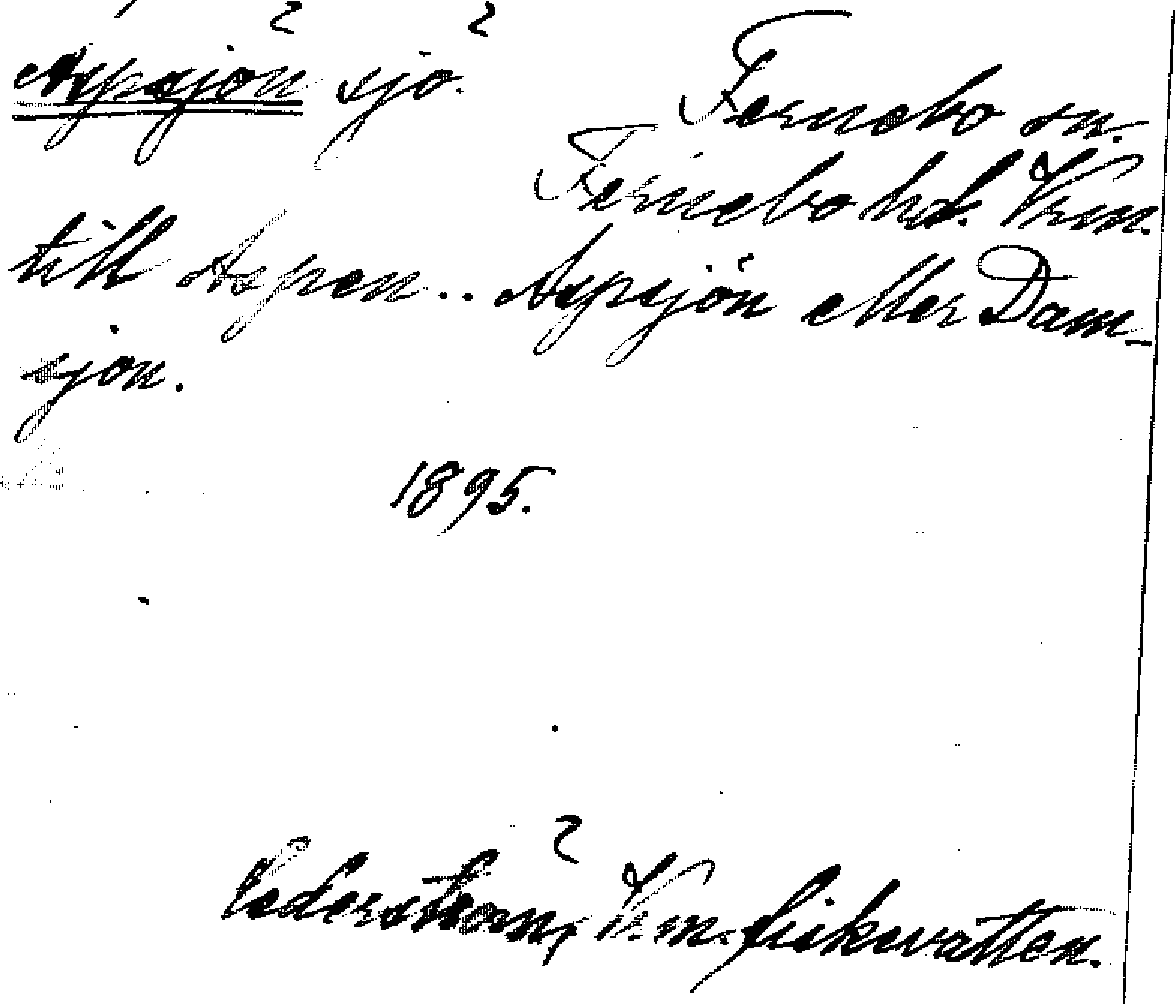 Aspsjön sjö.
Fernebo sn.
Fernebo hd. Vrm.
till Aspen.. Aspsjön eller Dam-
sjön.
1895.
Cederström, V.m. fiskevatten.